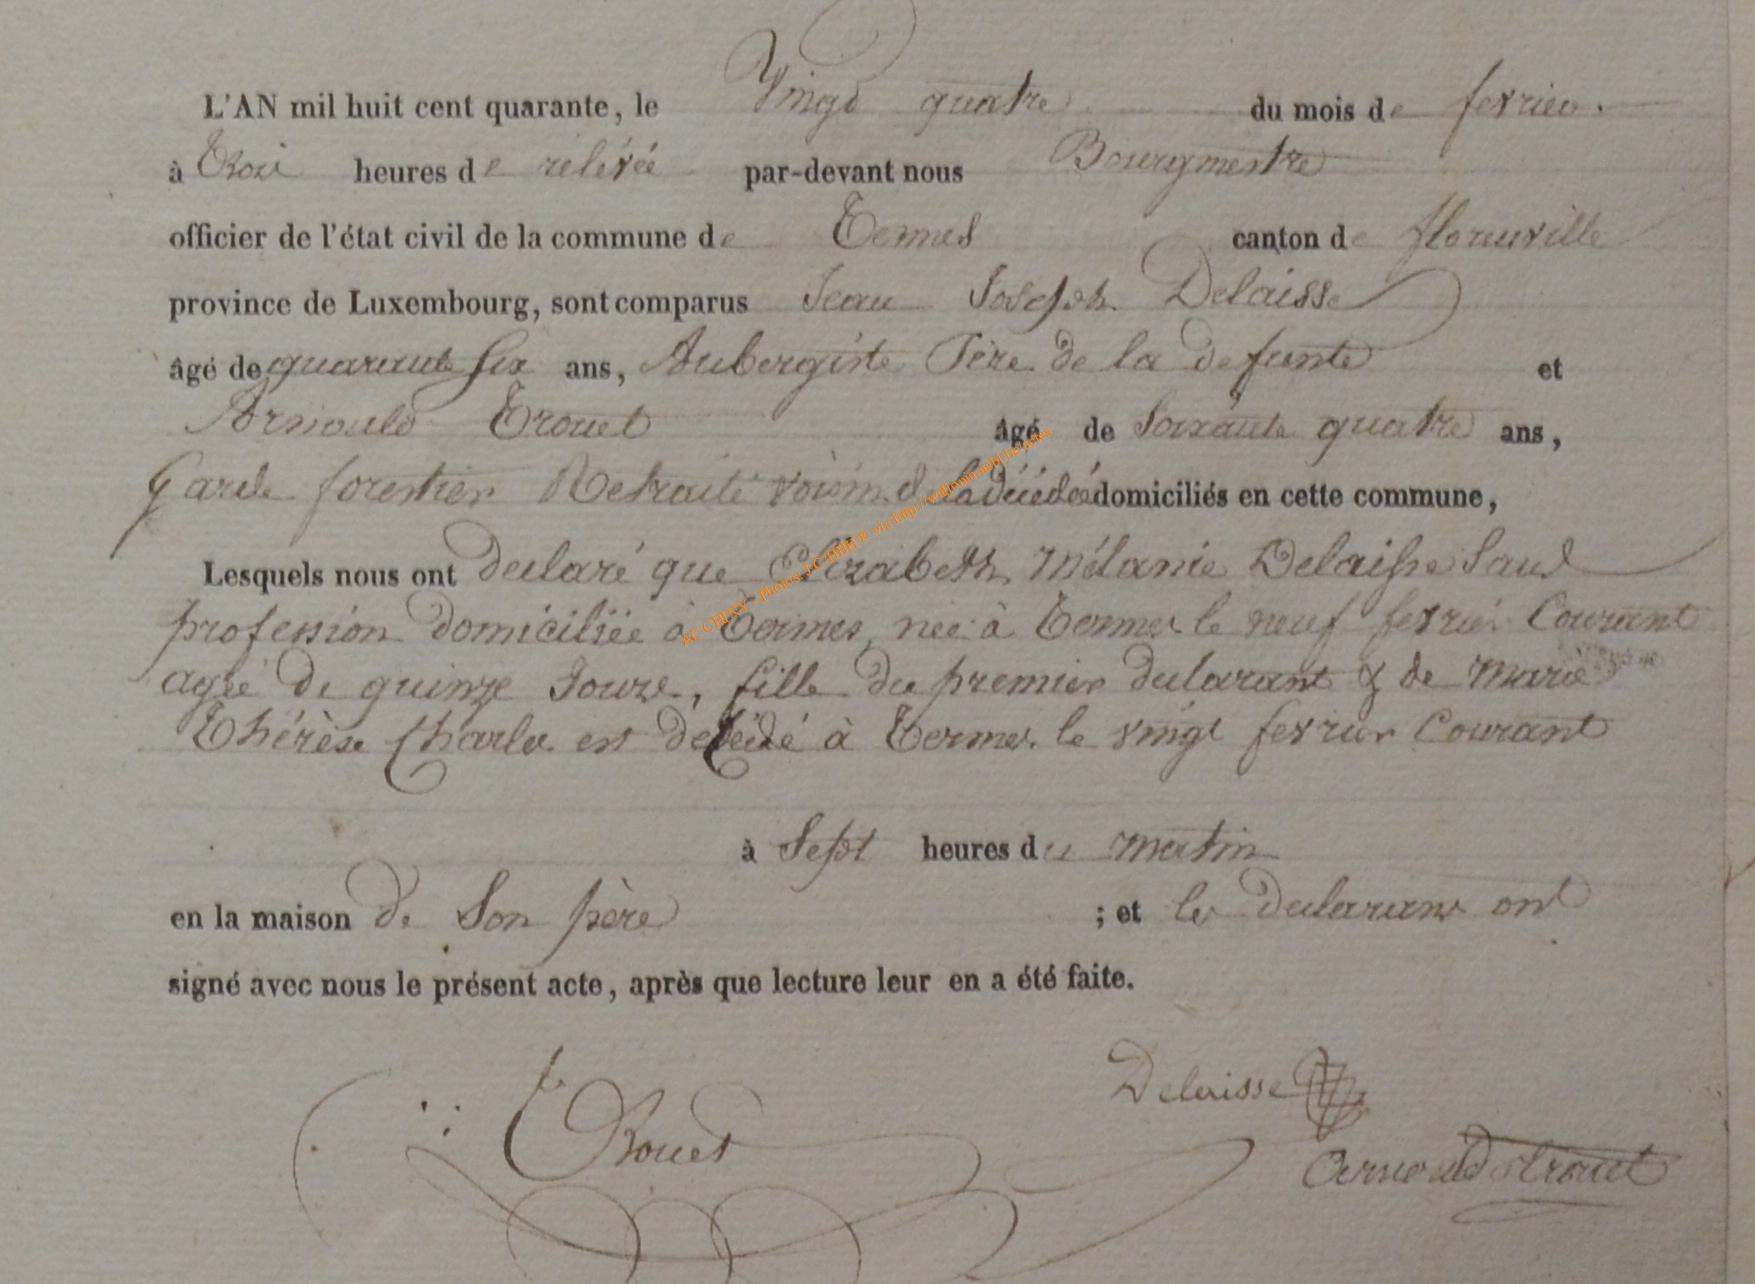 L'AN mil huit cent quarante, le Vingt quatre du mois de fevrier.
à Troi heures de rélévée par-devant nous Bourgmestre
officier de l'état civil de la commune de Termes canton de florenville
province de Luxembourg, sont comparus Jean Joseph Delaisse
âgé de quarante six ans, Aubergiste Père de la defunte et
Arnould Trouet âgé de Soixante quatre ans,
Garde forestier Retraité voisin d la décédée domiciliés en cette commune,
Lesquels nous ont declaré que Elizabeth Mélanie Delaisse Sans
profession domiciliée à Termes, née à Termes le neuf fevrier Courant
agée de quinze Jours, fille du premier declarant & de Marie
Thérèse Charles est décédé à Termes le vingt fevrier Courant
à Sept heures du matin
en la maison de Son père ; et les declarans ont
signé avec nous le présent acte, après que lecture leur en a été faite.
Delaisse
Trouet
Arnould Trouet